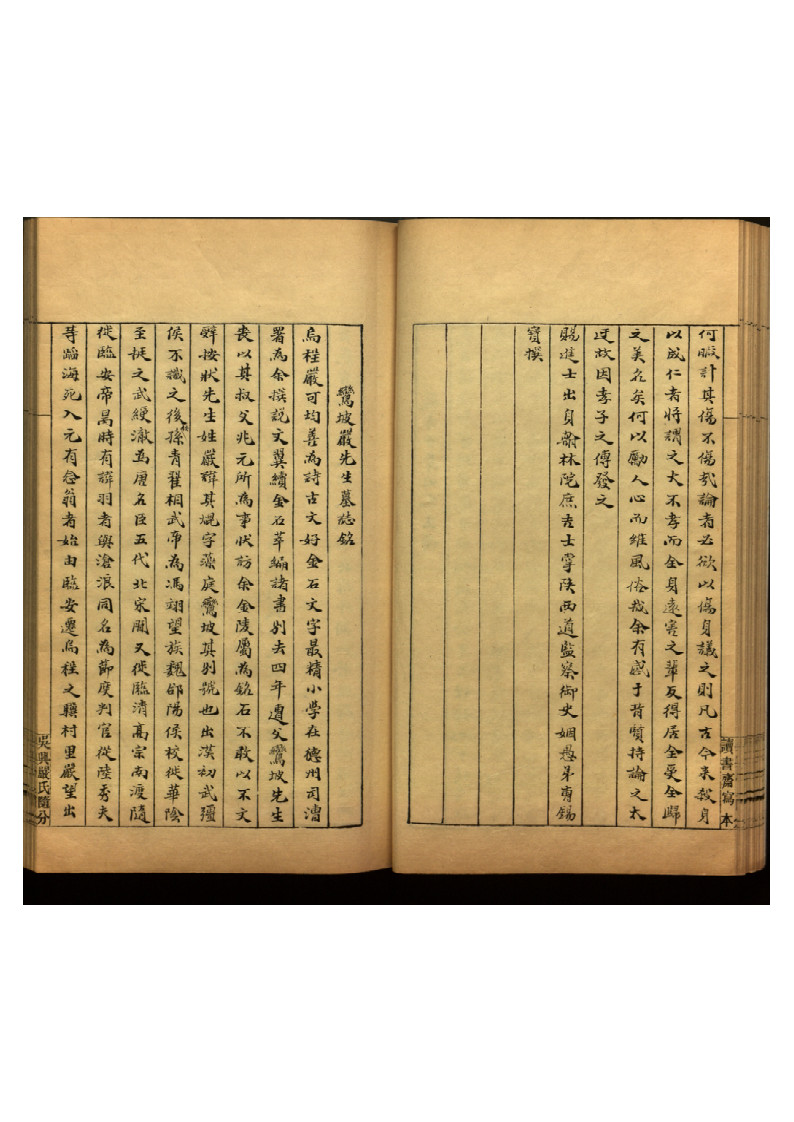 何暇計其傷不傷哉論者必欲以傷身議之則凡古今來殺身
以成仁者將謂之大不孝而全身遠害之輩反得居全受全歸
之美名矣何以勵人心而維風俗哉余有感于昔賢持論之太
迂故因孝子之傳發之
賜進士出身翰林院庶吉士掌陝西道監察御史姻愚弟費錫
寶撰
讀書齋寫本
鸞坡嚴先生墓誌銘
烏程嚴可均善為詩古文好金石文字最精小學在德州司漕
署為余撰說文翼續金石萃編諸書別去四年遭父鸞坡先生
喪以其叔父兆元所為事狀訪余金陵屬為銘石不敢以不文
辭按狀先生姓嚴諱其焜字藻庭鸞坡其別號也出漢初武彊
侯不識之後裔孫青翟相武帝為馮翊望族魏郃陽侯校徙華陰
至挺之武綬澈為唐名臣五代北宋閒又徙臨清高宗南渡隨
徙臨安帝昺時有諱羽者與滄浪同名為節度判官從陸秀夫
等蹈海死入元有念翁者始由臨安遷烏程之驥村里嚴望出
吳興嚴氏隨分